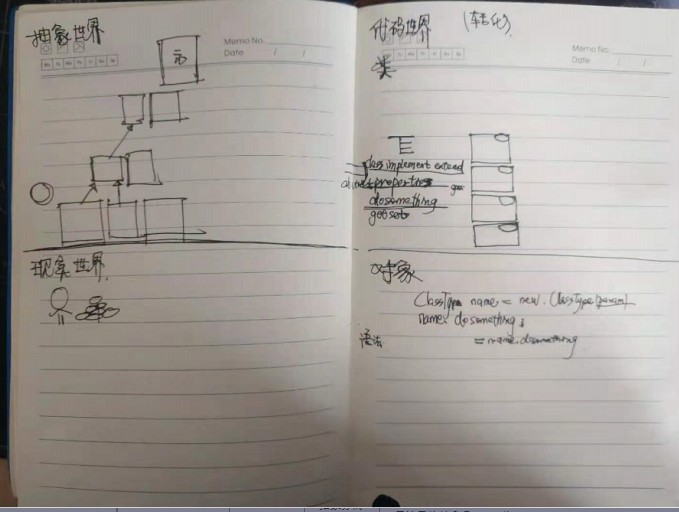 抽象世界
Memo No.
Date / /
Mo Tu We Th Fr Sa Su
现象世界
代码世界 (转化)
Memo No.
Date / /
类
class implement extend
propertness
dosomething
get set
对象
ClassType name = new. ClassType(param)
name. dosomething;
语法
= name.dosomething